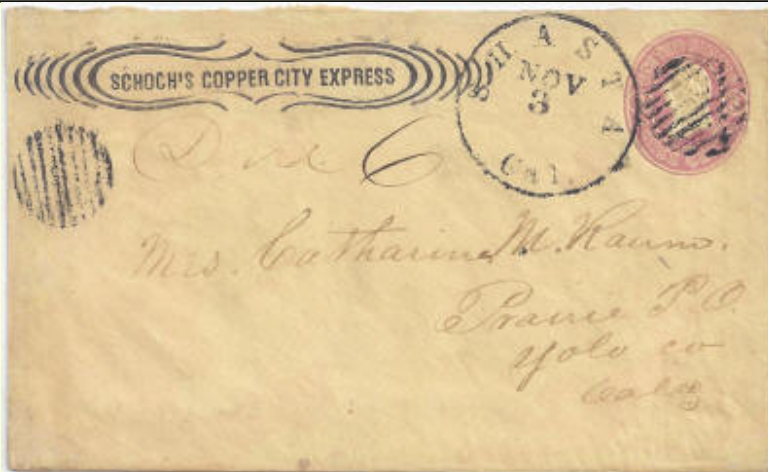 SCHOCH'S COPPER CITY EXPRESS
SHASTA
NOV
3
Cal.
Due 6
Mrs. Catharine M.
Prairie P.O.
Yolo co